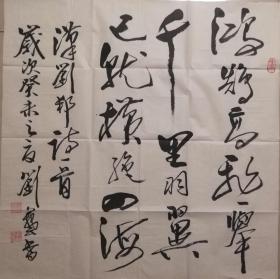 鴻鵠高飛一舉
千里羽翼
已就横絶四海
漢劉邦詩一首
歲次癸未之夏劉